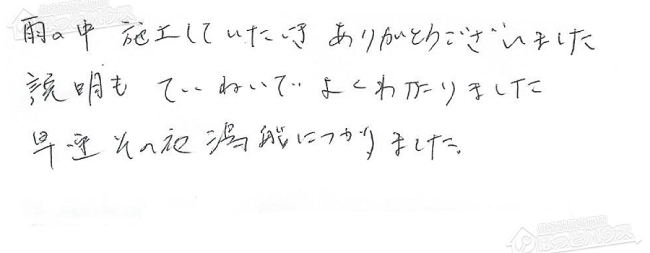 雨の中 施工していただき ありがとうございました
説明も ていねいで よくわかりました
早速 その夜 湯船につかりました。